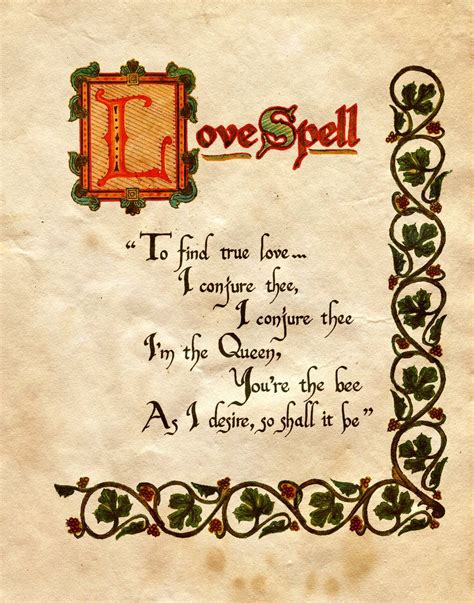 Love Spell
"To find true love...
I conjure thee,
I conjure thee
I'm the Queen,
You're the bee
As I desire, so shall it be"